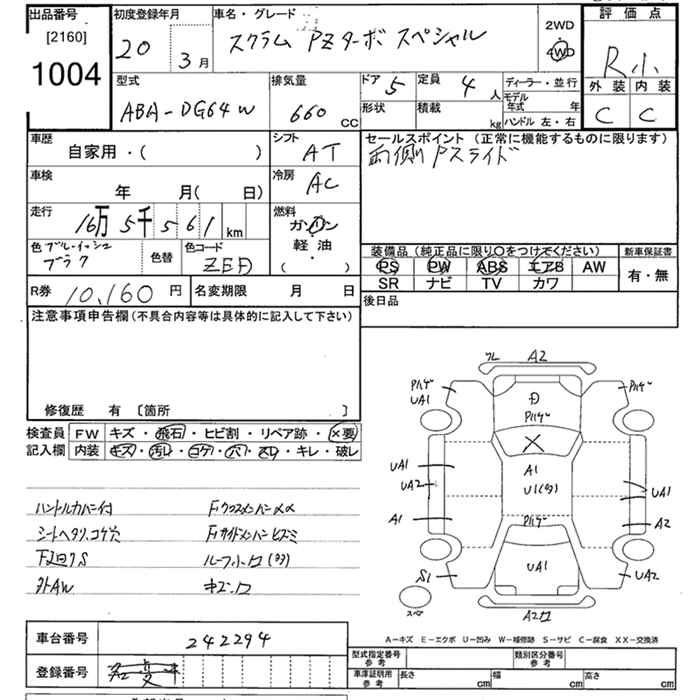 出品番号
[2160]
1004
初度登録年月
20 3月
車名・グレード
スクラム PZターボスペシャル
2WD
4WD
評価点
R小
外装 内装
C C
型式
ABA-DG64W
排気量
660 CC
ドア 5
定員 4人
形状
積載 kg
ディーラー・並行
モデル年式 年
ハンドル 左・右
車歴
自家用・( )
シフト
AT
セールスポイント (正常に機能するものに限ります)
両側Pスライド
車検
年 月( 日)
冷房
AC
走行
16万5千561 km
燃料
ガソリン
軽油
( ・ )
色 ブルーイッシュ
ブラク
色替
色コード
ZEF
装備品 (純正品に限り○をつけてください)
新車保証書
PS PW ABS エアB AW
SR ナビ TV カワ
有・無
R券 10,160円
名変期限 月 日
後日品
注意事項申告欄 (不具合内容等は具体的に記入して下さい)
修復歴 有 [箇所 ]
検査員
記入欄
FW キズ・飛石・ヒビ割・リペア跡・×要
内装 キズ・汚レ・コゲ・穴・スレ・キレ・破レ
ハンドルカバー付
シートヘタリ、コゲ穴
下廻りS
外AW
FクロスメンバーメメA
Fサイドメンバーヒズミ
ルーフ小凹(多)
キズ・凹
ワレ A2
Pハゲ
UA1
Pハゲ
Pハゲ
A1
U1(多)
UA1
UA2
A1
UA1
A2
Pハゲ
UA1
S1
UA2
スペア
A2凹
A-キズ E-エクボ U-凹み W-補修跡 S-サビ C-腐食 XX-交換済
車台番号
242294
登録番号
型式指定番号
参考
類別区分番号
参考
車庫証明用
参考
長さ cm
幅 cm
高さ cm